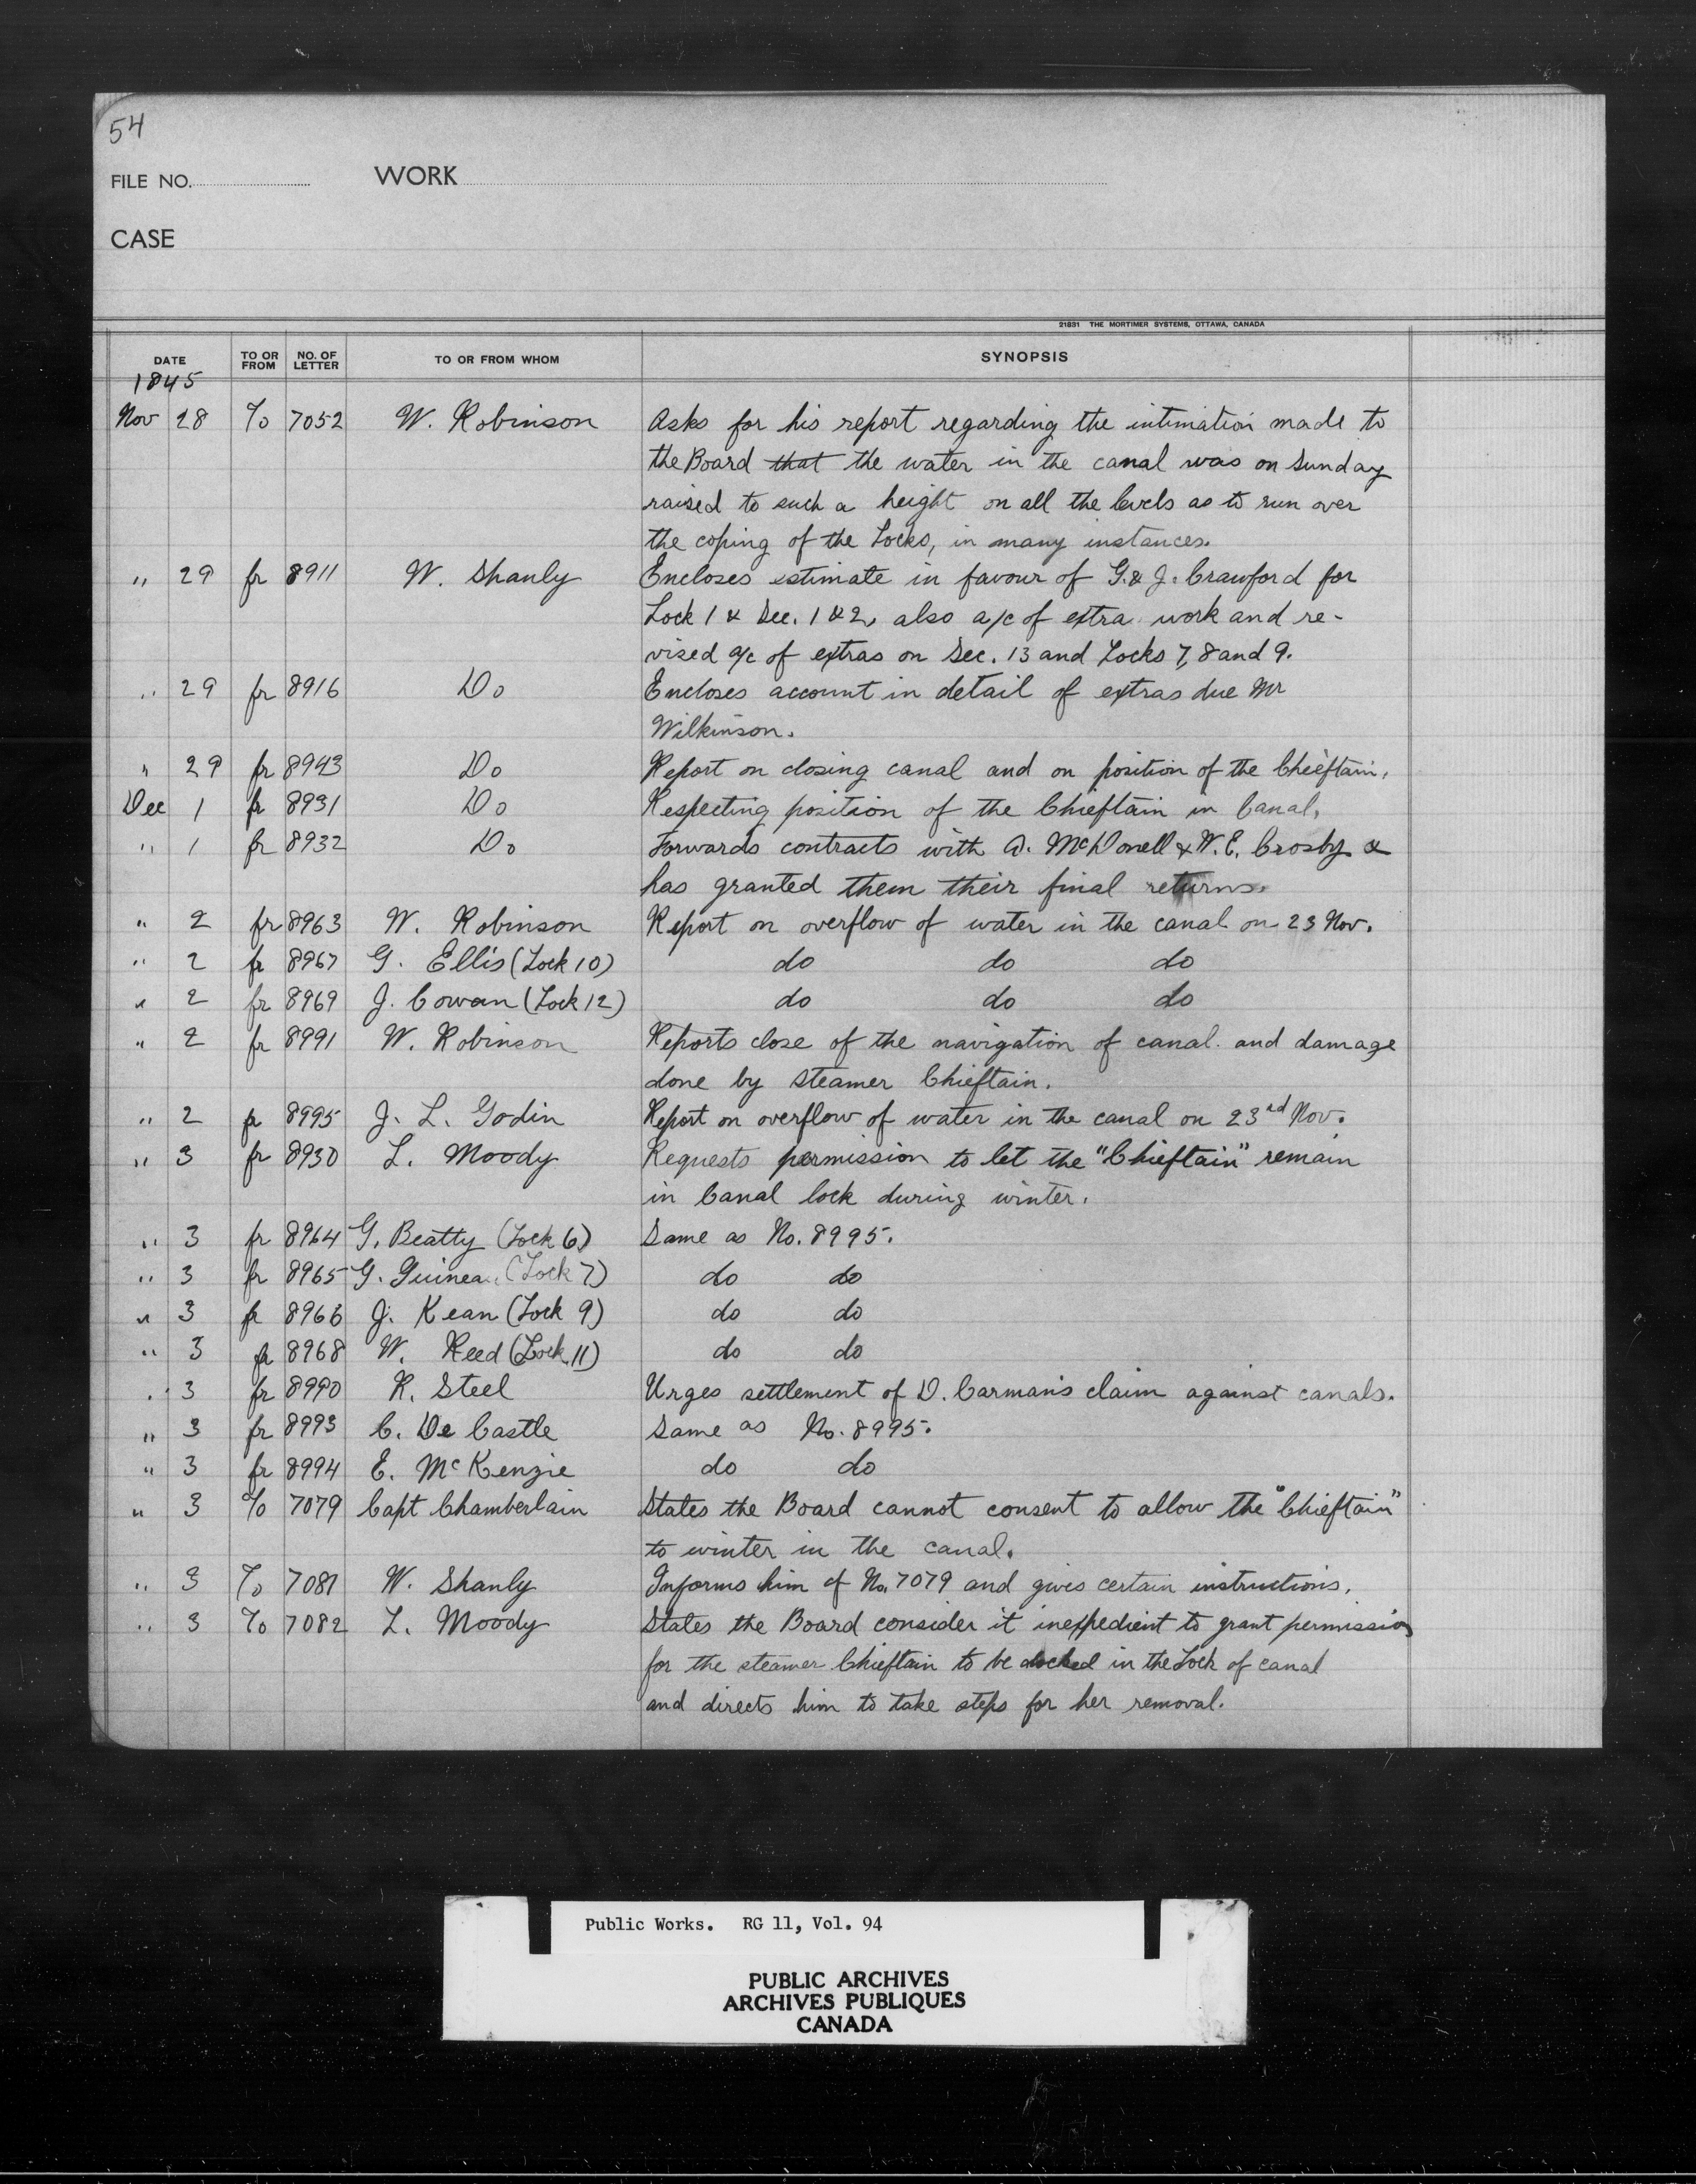 54
FILE NO. WORK
CASE
21831 THE MORTIMER SYSTEMS, OTTAWA, CANADA
DATE TO OR FROM NO. OF LETTER TO OR FROM WHOM SYNOPSIS
1845
Nov 28 To 7052 W. Robinson Asks for his report regarding the intimation made to
the Board that the water in the canal was on Sunday
raised to such a height on all the levels as to run over
the coping of the Locks, in many instances.
" 29 fr 8911 W. Shanly Encloses estimate in favour of G. & J. Crawford for
Lock 1 & Sec. 1 & 2, also a/c of extra work and re-
vised a/c of extras on Sec. 13 and Locks 7, 8 and 9.
" 29 fr 8916 Do Encloses account in detail of extras due Mr
Wilkinson.
" 29 fr 8943 Do Report on closing canal and on position of the Chieftain.
Dec 1 fr 8931 Do Respecting position of the Chieftain in Canal.
" 1 fr 8932 Do Forwards contracts with A. McDonell & W. E. Crosby &
has granted them their final returns.
" 2 fr 8963 W. Robinson Report on overflow of water in the canal on 23 Nov.
" 2 fr 8967 G. Ellis (Lock 10) do do do
" 2 fr 8969 J. Cowan (Lock 12) do do do
" 2 fr 8991 W. Robinson Reports close of the navigation of canal and damage
done by steamer Chieftain.
" 2 fr 8995 J. L. Godin Report on overflow of water in the canal on 23rd Nov.
" 3 fr 8930 L. Moody Requests permission to let the "Chieftain" remain
in Canal lock during winter.
" 3 fr 8964 G. Beatty (Lock 6) Same as No. 8995.
" 3 fr 8965 G. (Lock 7) do do
" 3 fr 8966 J. Kean (Lock 9) do do
" 3 fr 8968 W. Reed (Lock 11) do do
" 3 fr 8990 R. Steel Urges settlement of D. Carman's claim against canals.
" 3 fr 8993 C. De Castle Same as No. 8995.
" 3 fr 8994 E. McKenzie do do
" 3 To 7079 Capt Chamberlain States the Board cannot consent to allow the "Chieftain"
to winter in the canal.
" 3 To 7081 W. Shanly Informs him of No. 7079 and gives certain instructions.
" 3 To 7082 L. Moody States the Board consider it inexpedient to grant permission
for the steamer Chieftain to be docked in the Lock of canal
and directs him to take steps for her removal.
Public Works. RG 11, Vol. 94
PUBLIC ARCHIVES
ARCHIVES PUBLIQUES
CANADA